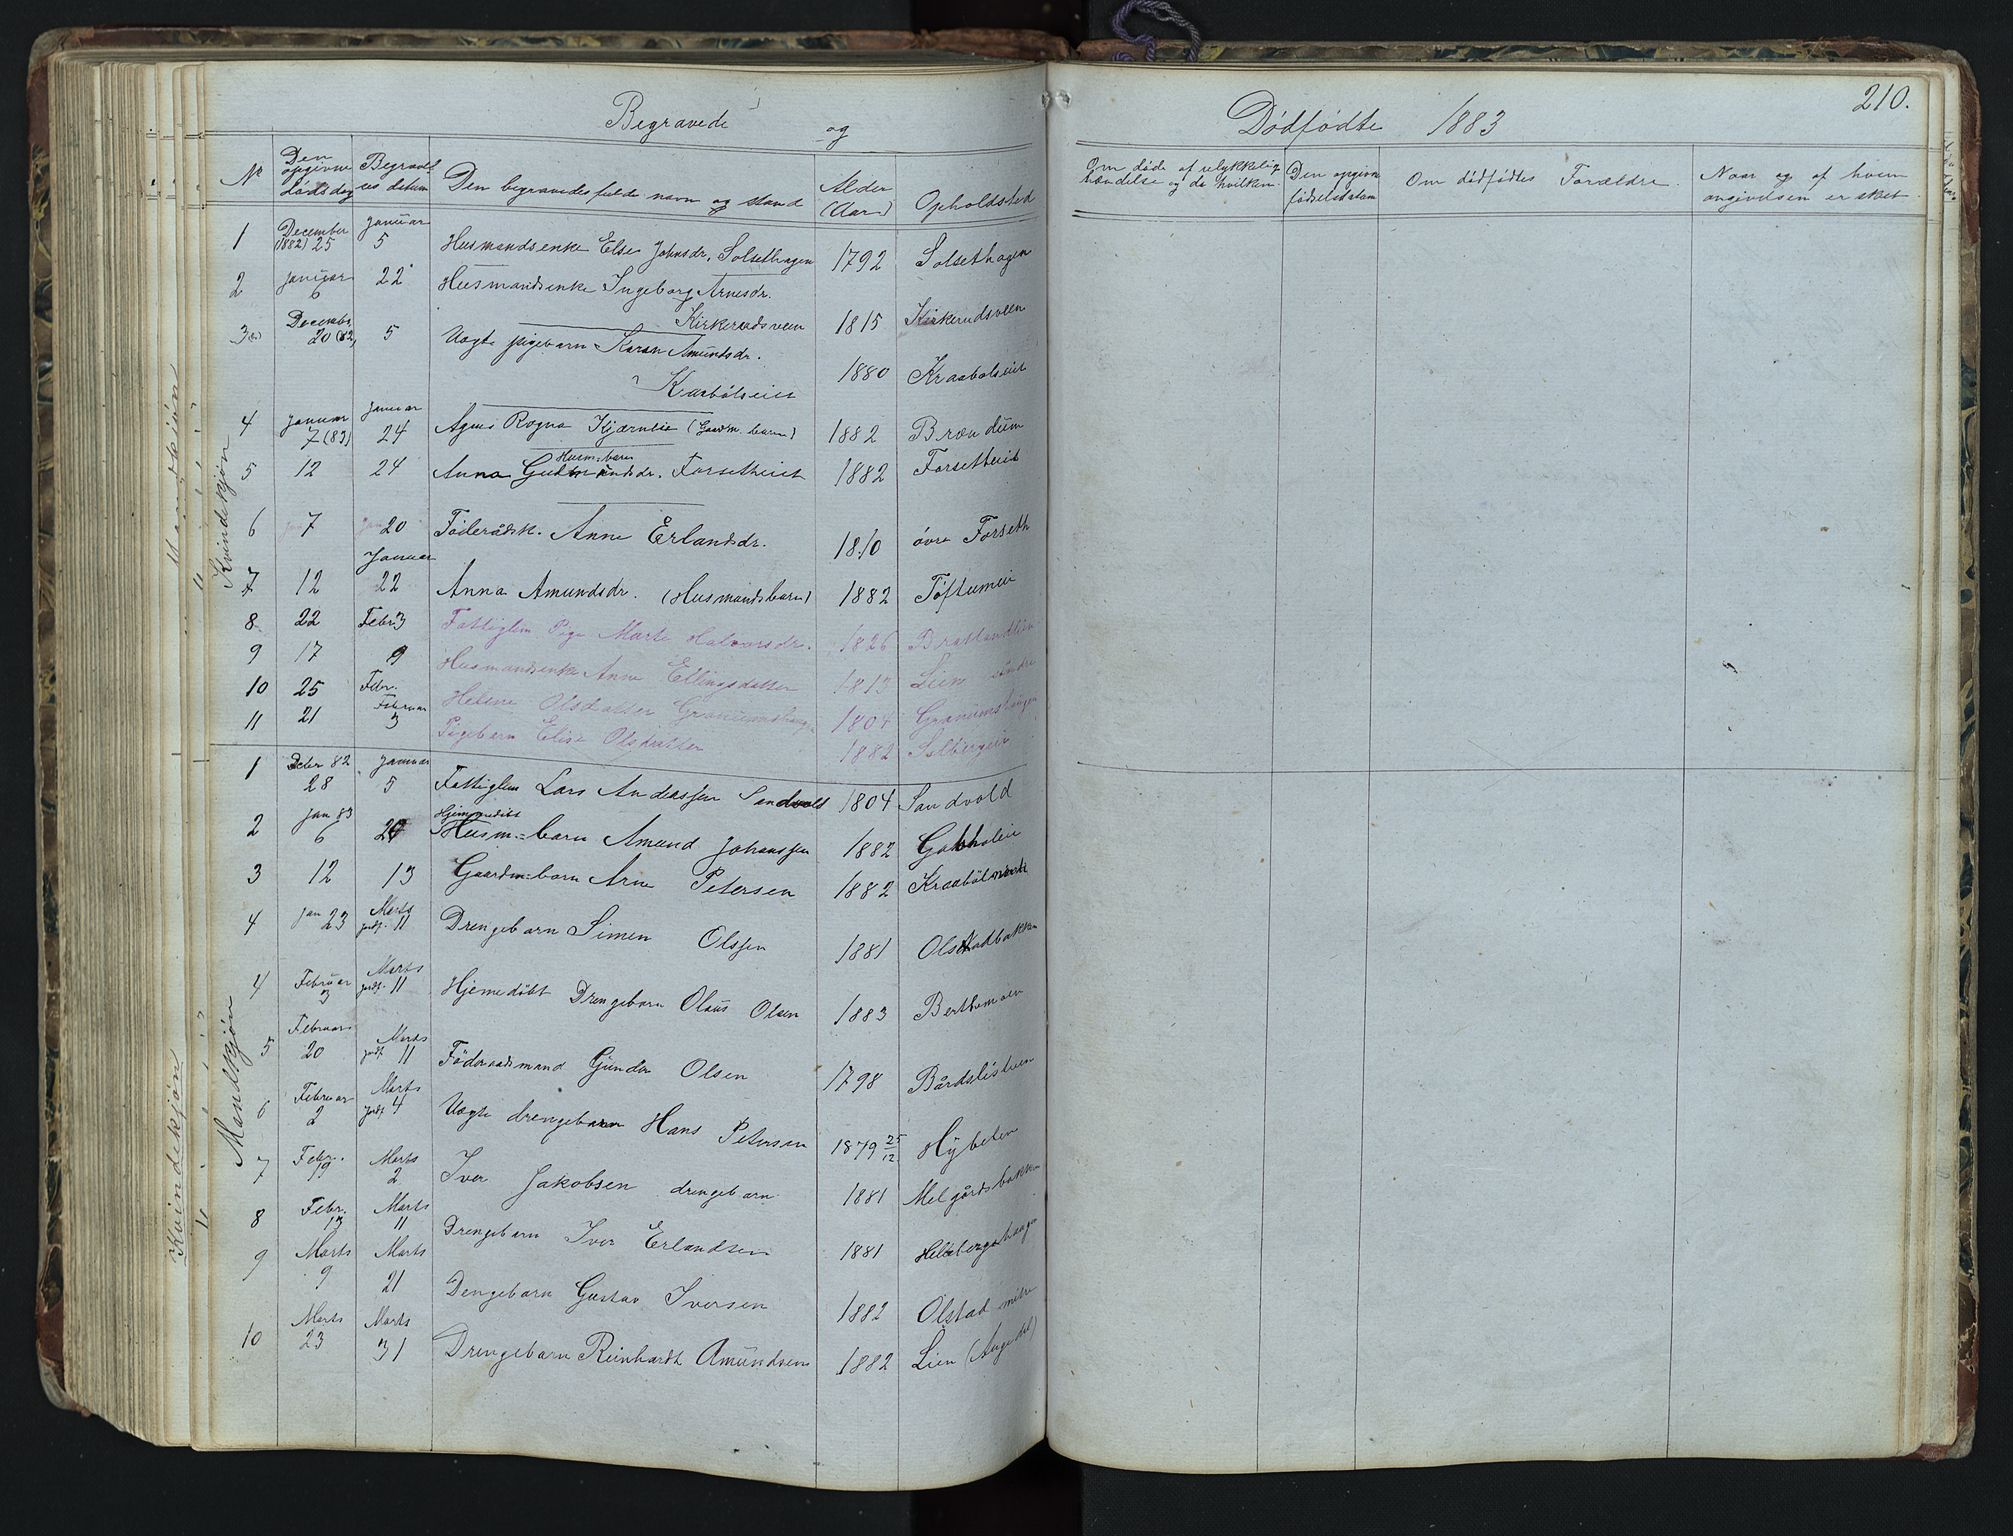 Begravede og Dødfødte 1883 210.
No Den opgivne dødsdag Begravelses datum Den begravedes fulde navn og stand Alder (Aar) Opholdsted Om døde af ulykkelig hændelse og da hvilken Den opgivne fødselsdatum Om dødfødtes Forældre. Naar og af hvem angivelsen er skeet
Kvindekjøn
1 December (1882) 25 Januar 5 Husmandsenke Else Johnsdr. Solsethagen 1792 Solsethagen
2 Januar 6 22 Husmandsenke Ingeborg Arnesdr.
Kirkerudsveen 1815 Kirkerudsveen
3 December 20 (82) 5 Uægte pigebarn Karen Amundsdr.
Kraabøleiet 1880 Kraaboleiet
4 Januar 7 (83) Januar 24 Agnes Ragna Kjærnlie (Gaardm. barn) 1882 Brændum
Husm=barn
5 12 24 Anna Gudmundsdr. Forsetheiet 1882 Forsetheiet
6 Jan 7 Jan 20 Føderådsk. Anne Erlandsdr. 1810 øvre Forseth
Januar
7 12 22 Anna Amundsdr. (Husmandsbarn) 1882 Toftumeie
8 22 Febr 3 Fattiglem Pige Marte Halvorsdr. 1826
9 17 9 Husmandsenke Anne Ellingsdatter 1813 Lien søndre
10 25 Febr. Helene Olsdatter Granumshaugen 1804 Granumshaugen
11 21 Februar 3 Pigebarn Elise Olsdatter 1882 Solbergeie
Mandkjøn
1 Dcbr 82 28 Januar 5 Fattiglem Lars Anderssen Sandvold 1804 Sandvold
Hjemmedøbt
2 Jan 83 6 20 Husm=barn Amund Johanssen 1882
3 12 13 Gaardm=barn Arne Petersen 1882 Kraabøl
4 Jan 23 Marts jordf. 11 Drengebarn Simen Olssen 1881 Olstadbakken
4 Februar 3 Marts jordf. 11 Hjemedøbt Drengebarn Olaus Olsen 1883
5 Februar 20 Marts jordf 11 Føderaadsmand Gunder Olsen 1798
6 Februar 2 Marts jordf 4 Uægte drengebarn Hans Petersen 1879 25/12 Hybelen
7 Febr. 19 Marts 2 Iver Jakobsen drengebarn 1881 Melgårdsbakken
8 Febr. 13 Marts 11 Drengebarn Iver Erlandsen 1881
9 Marts 9 Marts 21 Dengebarn Gustav Iversen 1882 Olstad
10 Marts 23 Marts 31 Drengebarn Reinhardt Amundsen 1882 Lien
Mandkjøn
Kvindekjøn